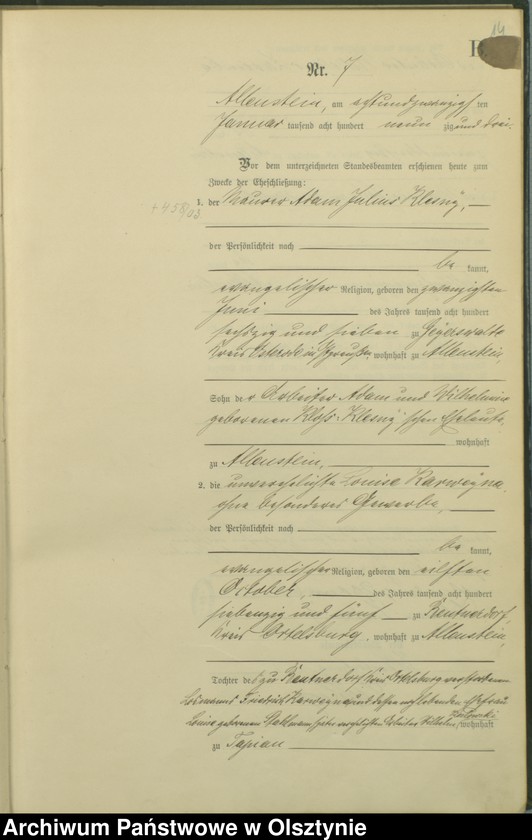 14
B.
Nr. 7
Allenstein, am achtundzwanzigsten
Januar tausend acht hundert neunzig und drei.
Vor dem unterzeichneten Standesbeamten erschienen heute zum
Zwecke der Eheschließung:
1. der Maurer Adam Julius Klesny,
+458/03
der Persönlichkeit nach
be kannt,
evangelischer Religion, geboren den zwanzigsten
Juni des Jahres tausend acht hundert
sechzig und sieben zu
Kreis Osterode in Ostpreußen, wohnhaft zu Allenstein,
Sohn der Arbeiter Adam und Wilhelmine
geborenen Kloß-Klesny'schen Eheleute,
wohnhaft
zu Allenstein,
2. die unverehelichte Louise Karwezyna
ohne besonderes Gewerbe,
der Persönlichkeit nach
be kannt,
evangelischer Religion, geboren den eilften
October, des Jahres tausend acht hundert
siebenzig und fünf zu Beutnerdorf,
Kreis Ortelsburg, wohnhaft zu Allenstein,
Tochter des zu Beutnerdorf Kreis Ortelsburg verstorbenen
Losmanns Friedrich und dessen noch lebenden Ehefrau
Louise geborenen wohnhaft
zu Tapiau
Archiwum Państwowe w Olsztynie